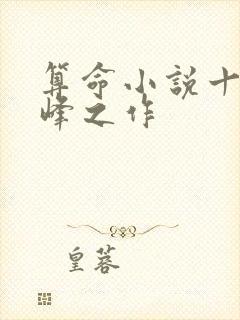 算命小説十
峰之作
皇蓉